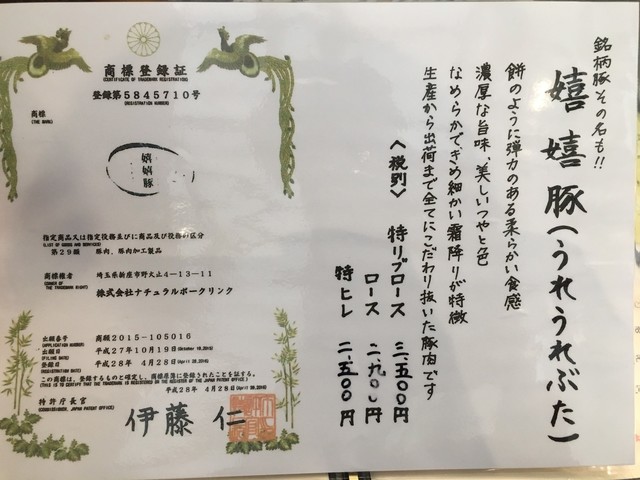 銘柄豚その名も!!
嬉嬉豚(うれうれぶた)
餅のように弾力のある柔らかい食感
濃厚な旨味、美しいつやと色
なめらかできめ細かい霜降りが特徴
生産から出荷まで全てにこだわり抜いた豚肉です
〈税別〉
特リブロース 三、五〇〇円
ロース 二、九〇〇円
特ヒレ 二、五〇〇円
商標登録証
(CERTIFICATE OF TRADEMARK REGISTRATION)
登録第5845710号
(REGISTRATION NUMBER)
商標
(THE MARK)
嬉嬉豚
指定商品又は指定役務並びに商品及び役務の区分
(LIST OF GOODS AND SERVICES)
第29類 豚肉、豚肉加工製品
商標権者
(OWNER OF THE TRADEMARK RIGHT)
埼玉県新座市野火止4-13-11
株式会社ナチュラルポークリンク
出願番号
(APPLICATION NUMBER)
商願2015-105016
出願日
(FILING DATE)
平成27年10月19日(October 19,2015)
登録日
(REGISTRATION DATE)
平成28年 4月28日(April 28,2016)
この商標は、登録するものと確定し、商標原簿に登録されたことを証する。
(THIS IS TO CERTIFY THAT THE TRADEMARK IS REGISTERED ON THE REGISTER OF THE JAPAN PATENT OFFICE.)
平成28年 4月28日(April 28,2016)
特許庁長官
(COMMISSIONER, JAPAN PATENT OFFICE)
伊藤 仁